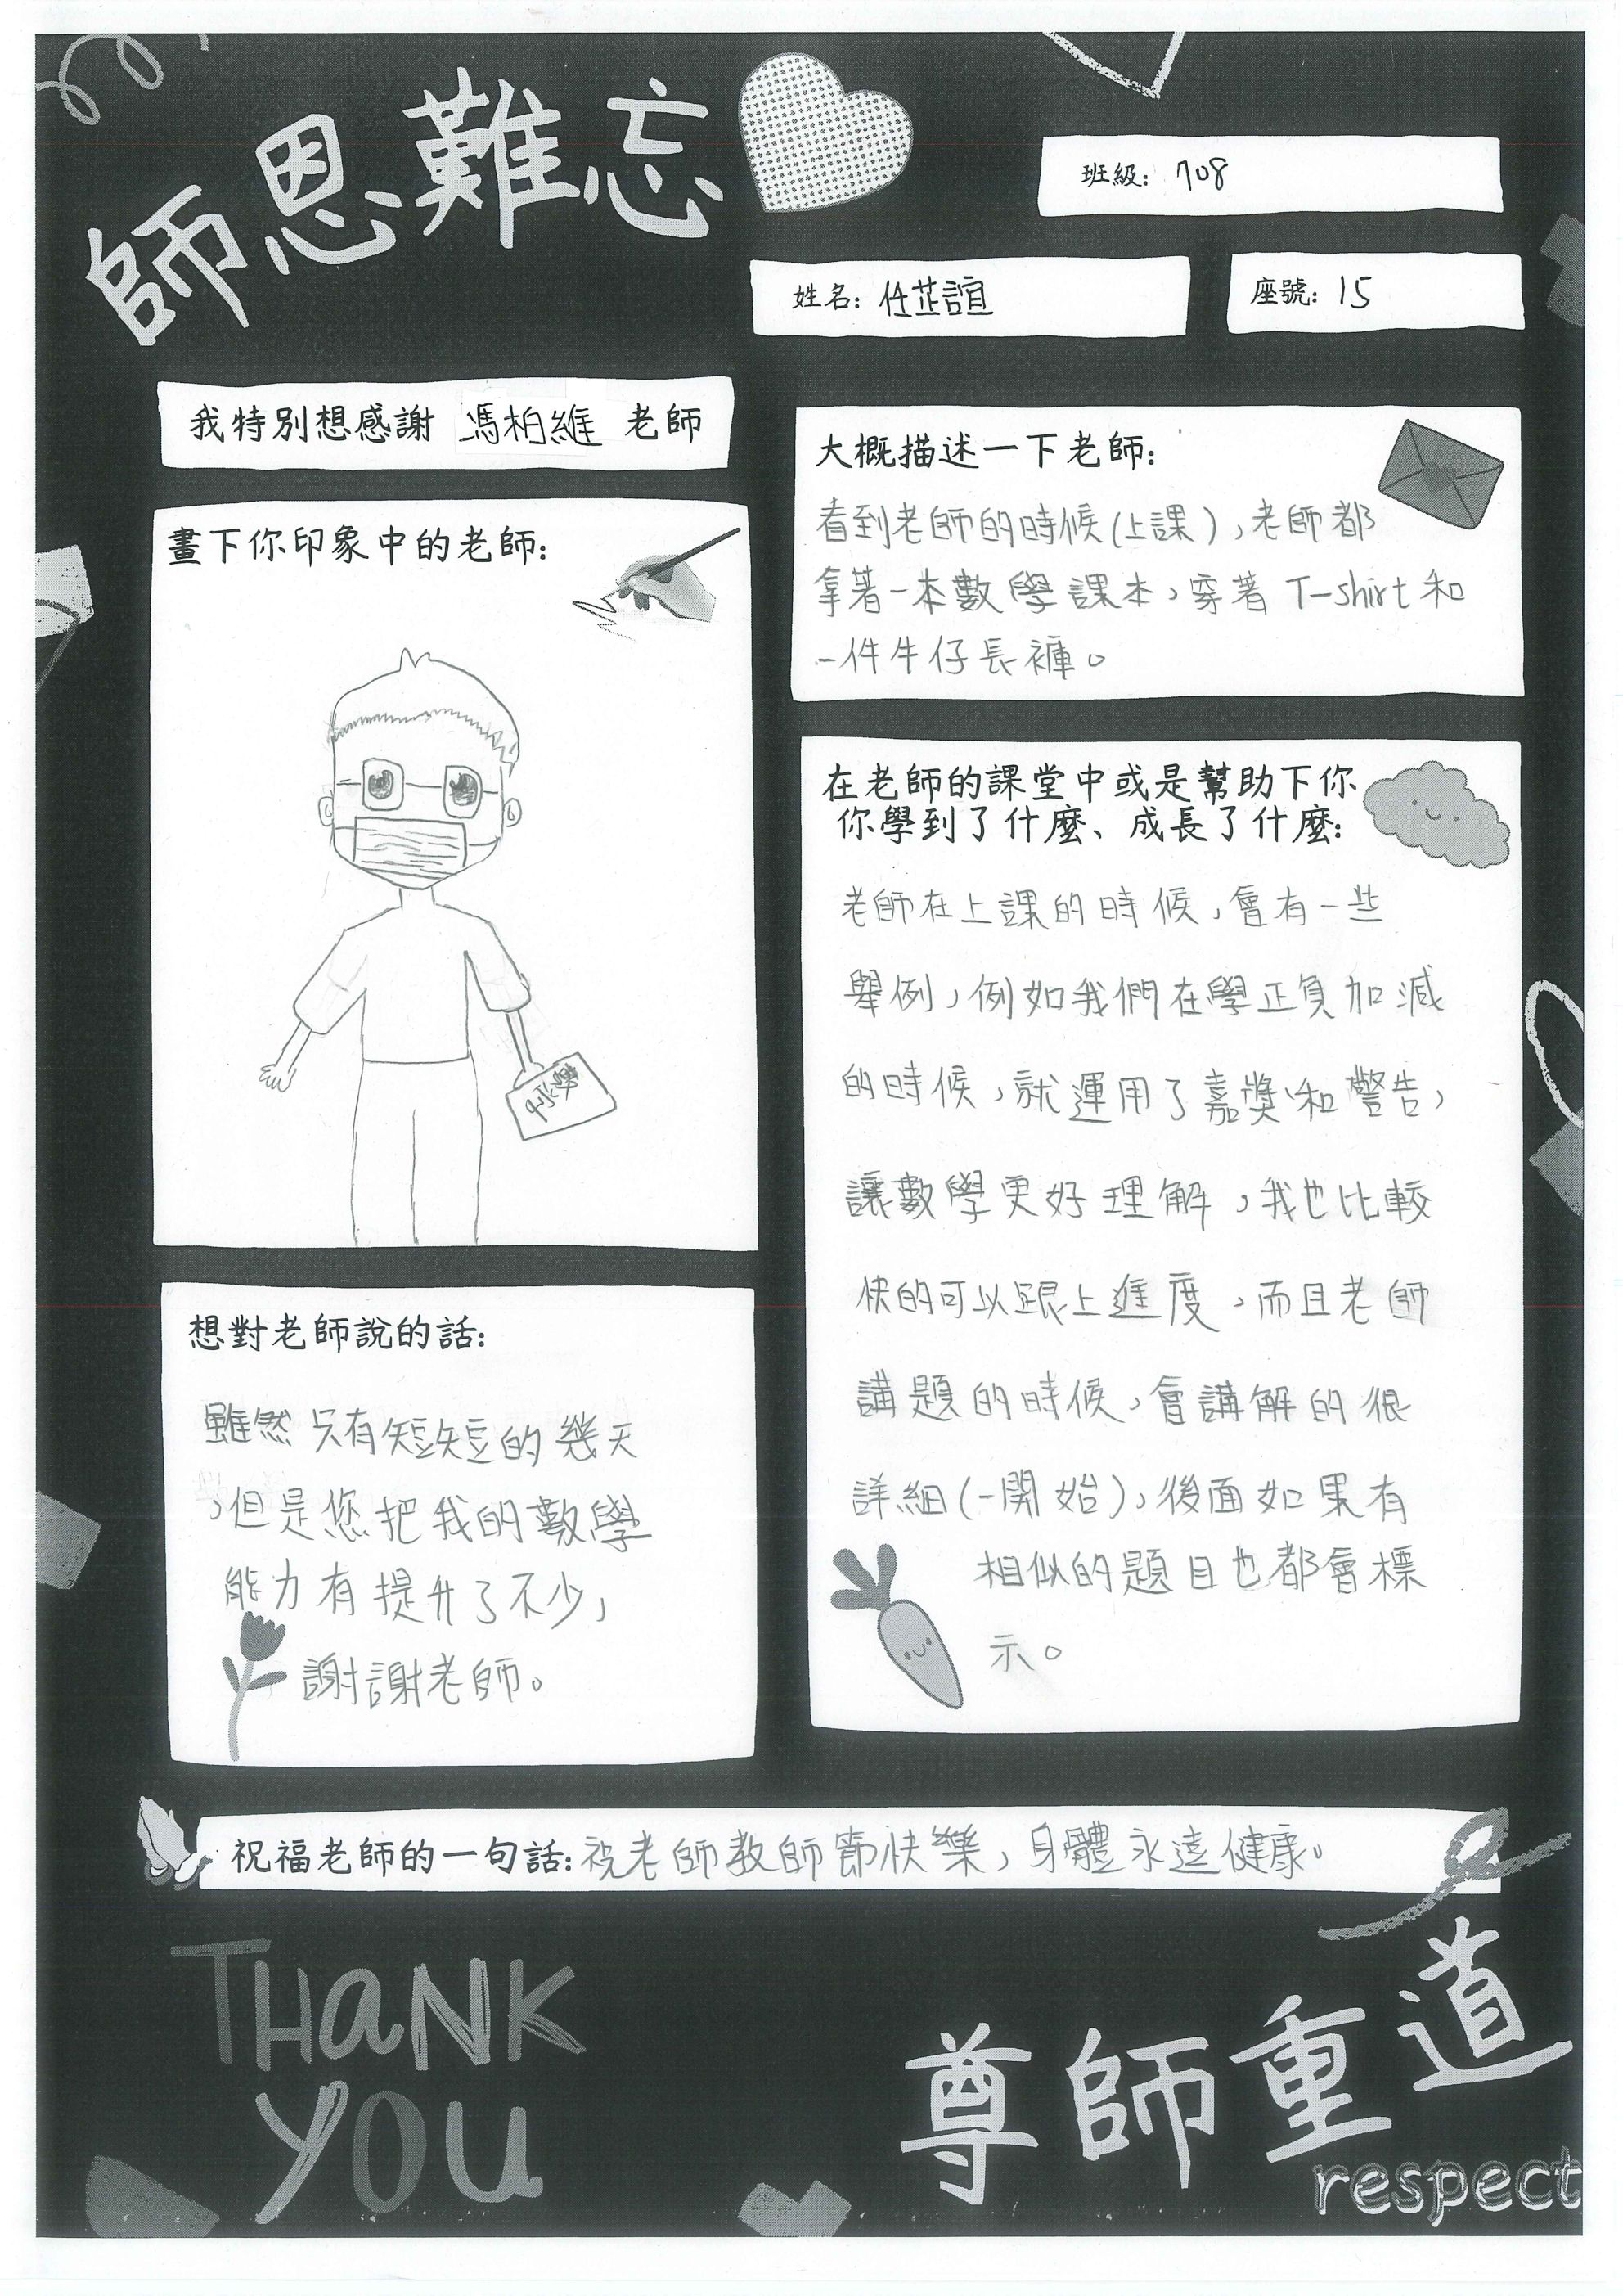 師恩難忘
班級: 708
姓名: 任芷誼
座號: 15
我特別想感謝 馮柏維 老師
大概描述一下老師:
看到老師的時候(上課),老師都
拿著一本數學課本,穿著T-shirt和
一件牛仔長褲。
畫下你印象中的老師:
在老師的課堂中或是幫助下你
你學到了什麼、成長了什麼:
老師在上課的時候,會有一些
舉例,例如我們在學正負加減
的時候,就運用了嘉獎和警告,
讓數學更好理解,我也比較
快的可以跟上進度,而且老師
講題的時候,會講解的很
詳細(一開始),後面如果有
相似的題目也都會標
示。
想對老師說的話:
雖然只有短短的幾天
,但是您把我的數學
能力有提升了不少,
謝謝老師。
祝福老師的一句話:祝老師教師節快樂,身體永遠健康。
THANK
YOU
尊師重道
respect